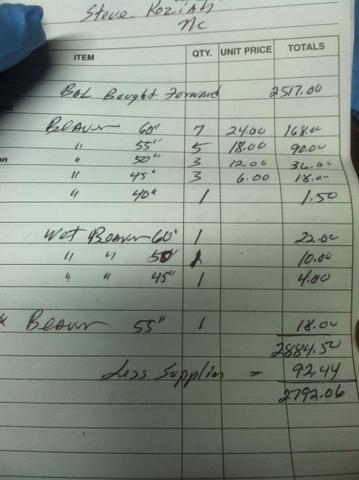 Steve
NC
ITEM QTY. UNIT PRICE TOTALS
BAL Bought Forward 2517.00
Beaver 60" 7 24.00 168.00
" 55" 5 18.00 90.00
on " 50" 3 12.00 36.00
" 45" 3 6.00 18.00
" 40" 1 1.50
Wet Beaver 60" 1 22.00
" " 50" 1 10.00
" " 45" 1 4.00
Beaver 55" 1 18.00
2884.50
Less Supplies = 92.44
2792.06